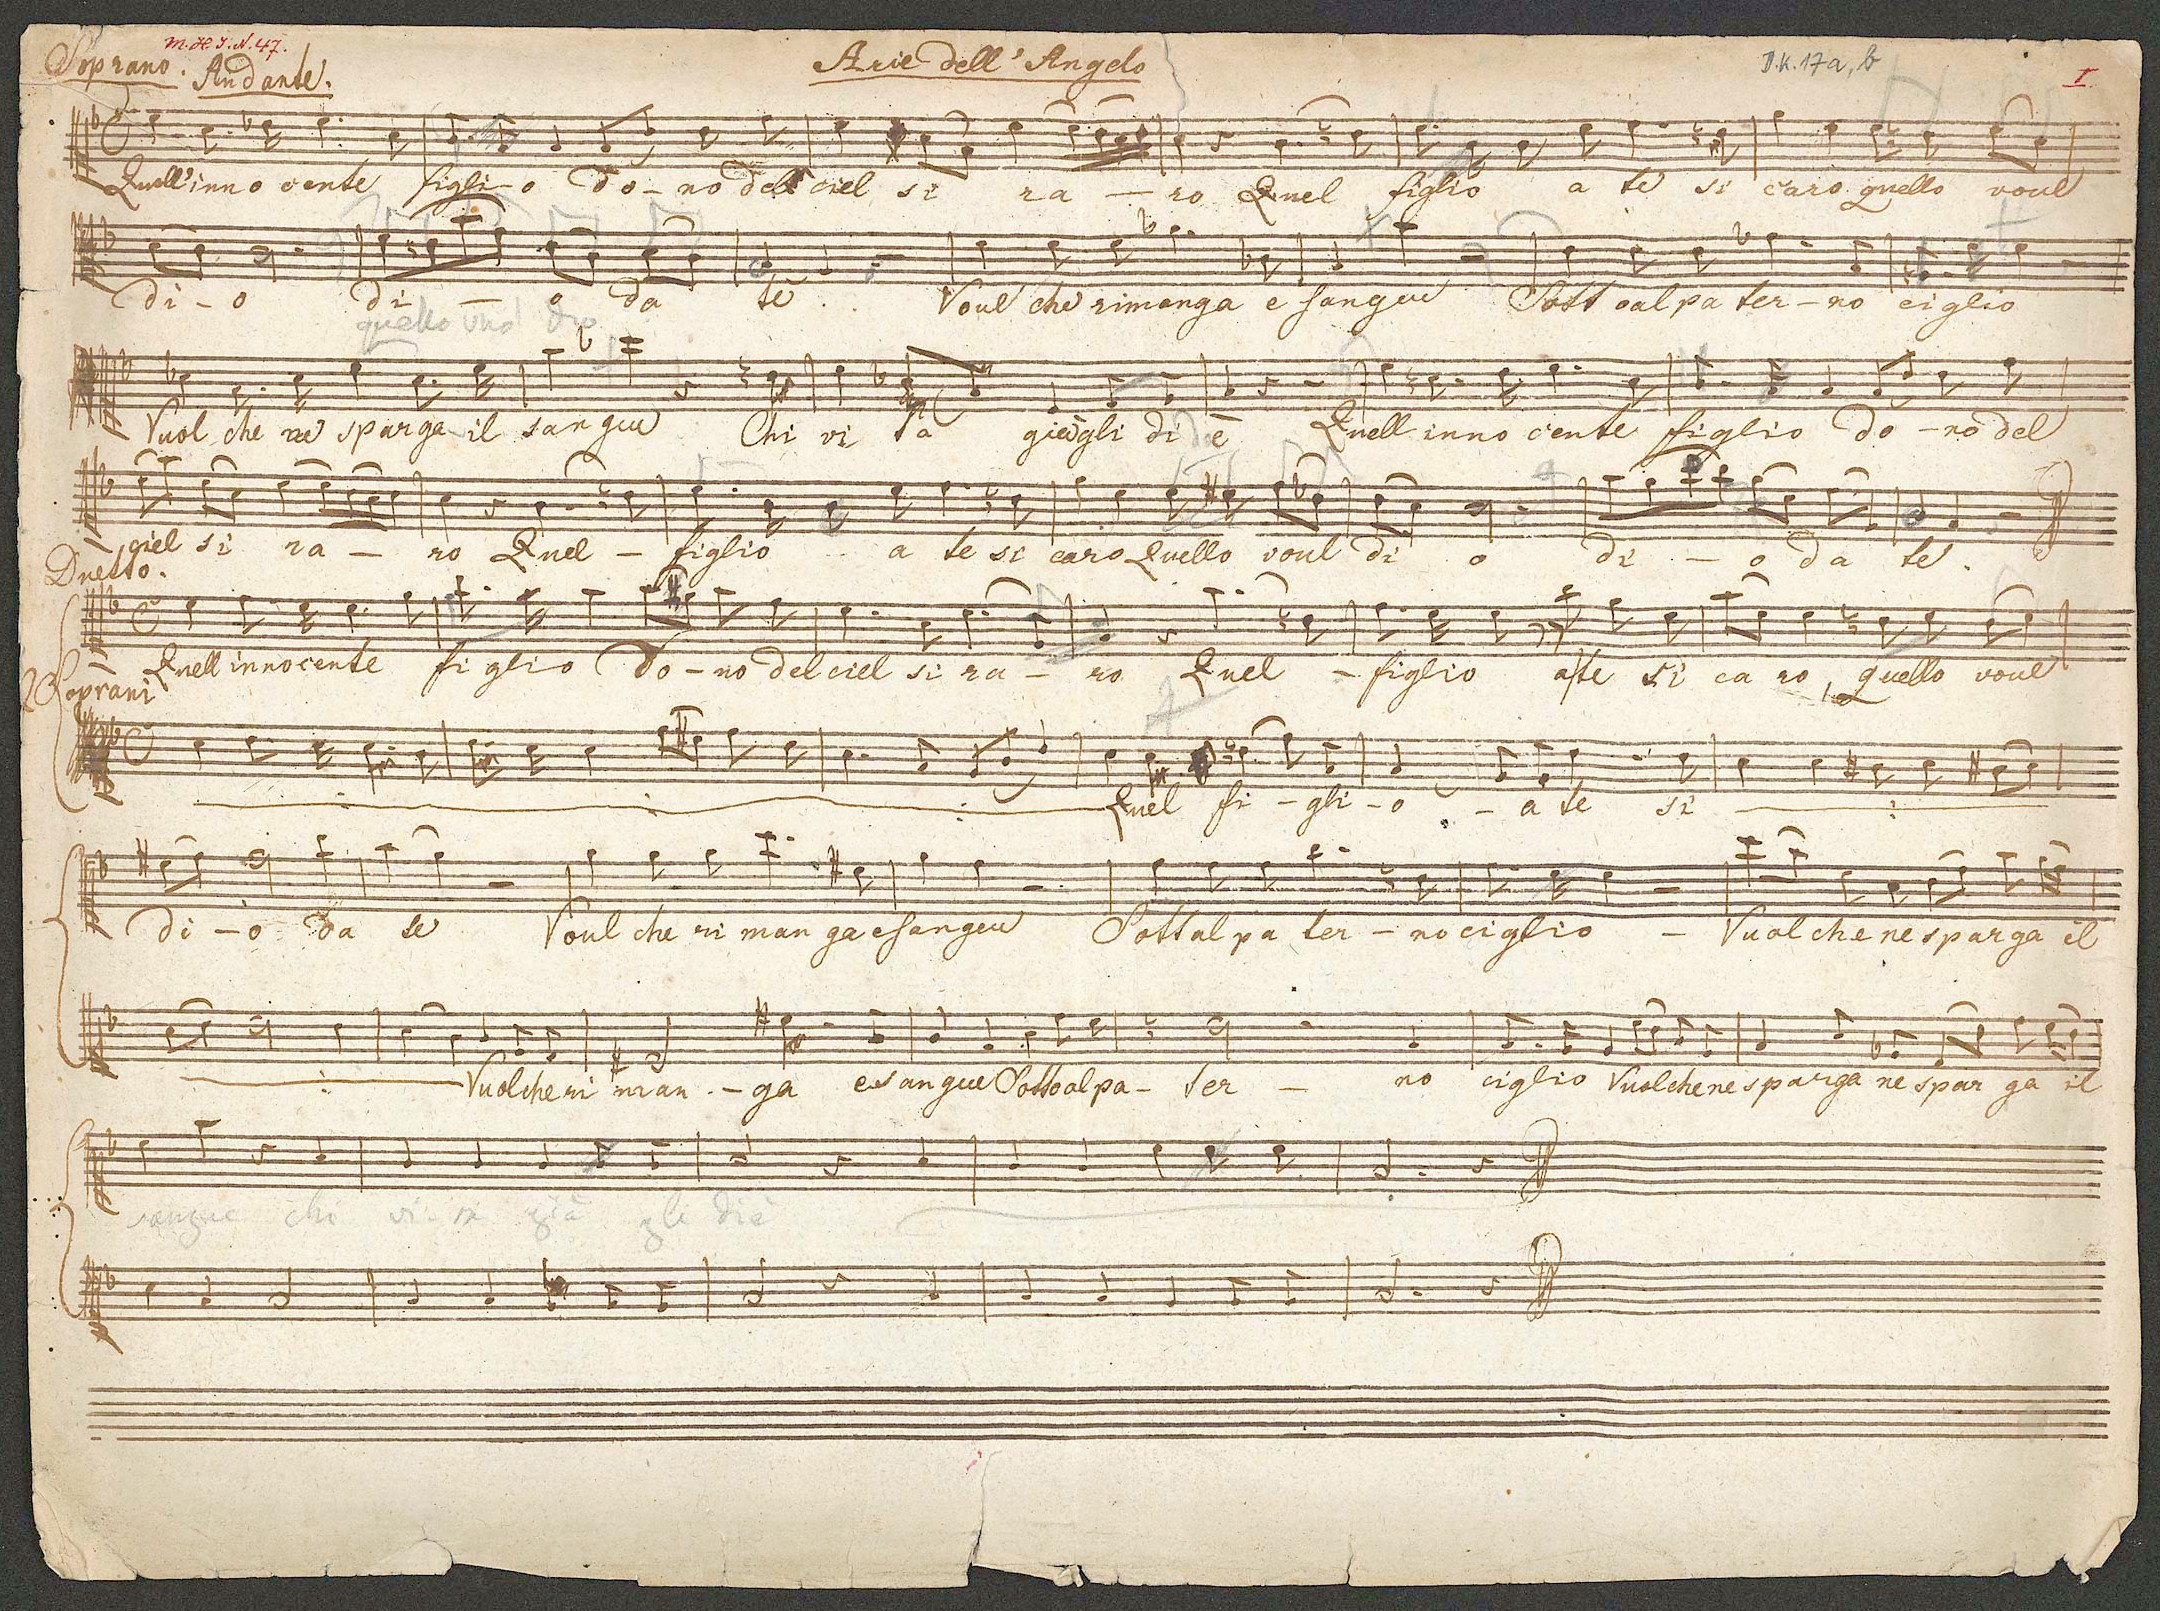 M. H. I. N. 47.
Soprano. Andante. Arie dell' Angelo D.K. 17a, b I
Quell' inno cente figli-o do-no dell ciel si ra - ro Quel figlio a te si caro quello voul
di-o di - o da te. Voul che rimanga e sangue Sott oal pa ter-no ciglio
quello
Vuol che ne sparga il sangue Chi vi ta già gli di è Quell inno cente figlio do-no del
ciel si ra - ro Quel - figlio a te si caro Quello voul di o di - o da te.
Duetto.
Quell innocente fi glio Do-no del ciel si ra - ro Quel - figlio a te si ca ro, quello voul
2 Soprani
Quel fi-gli-o - a te si
di-o da te Voul che ri man ga esangue Sott al pa ter-no ciglio - Vual che ne sparga il
Vual che ri man.-ga esangue Sotto al pa-ter - no ciglio Vual che ne sparga ne spar ga il
sangue chi vi-ta già gli diè